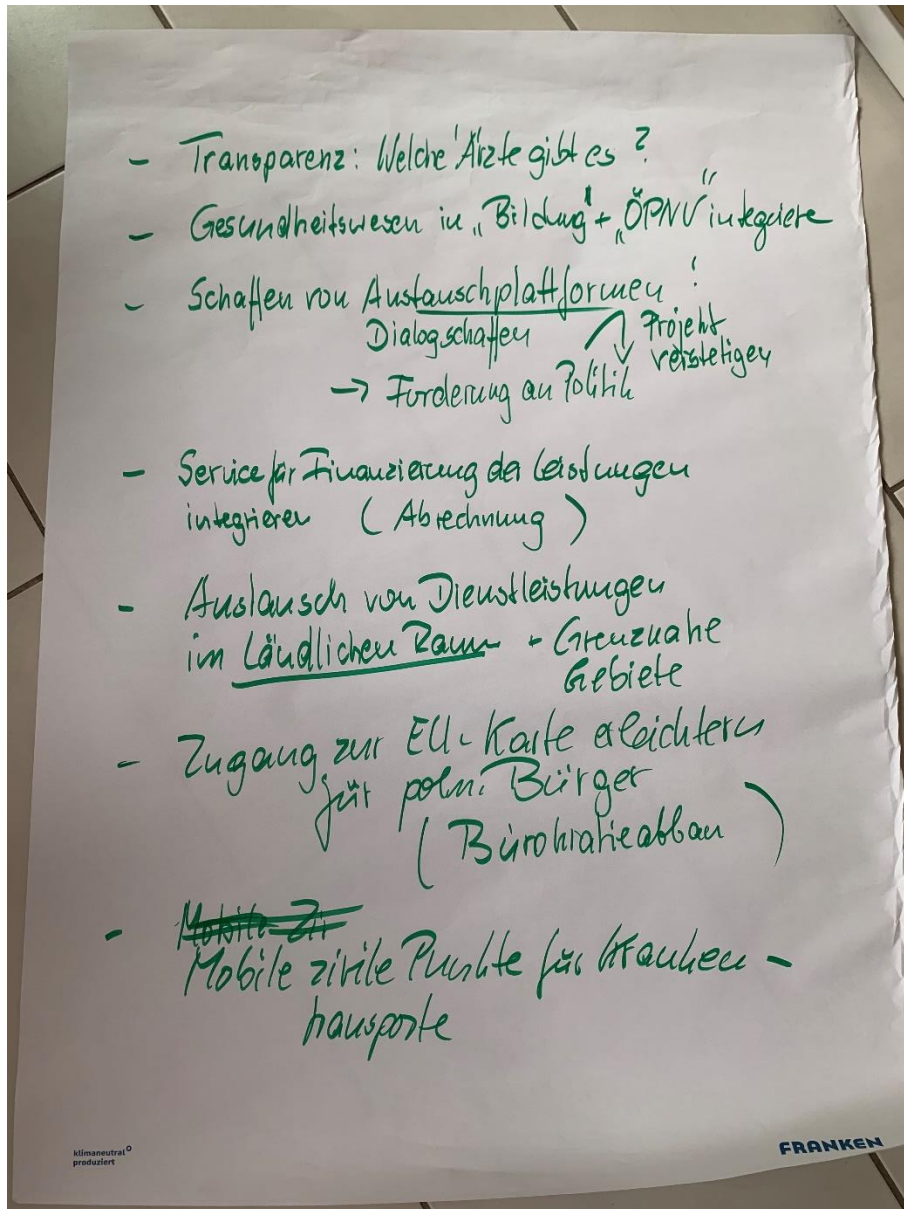 - Transparenz: Welche Ärzte gibt es?
- Gesundheitswesen in „Bildung" + „ÖPNV" integriere
- Schaffen von Austauschplattformen!
Dialog schaffen
Projekt
verstetigen
→ Forderung an Politik
- Service für Finanzierung der Leistungen
integrieren (Abrechnung)
- Austausch von Dienstleistungen
im Ländlichen Raum - Grenznahe
Gebiete
- Zugang zur EU-Karte erleichtern
für poln. Bürger
(Bürokratieabbau)
- Mobile Zi
Mobile zivile Punkte für Kranken-
transporte
klimaneutral
produziert
FRANKEN